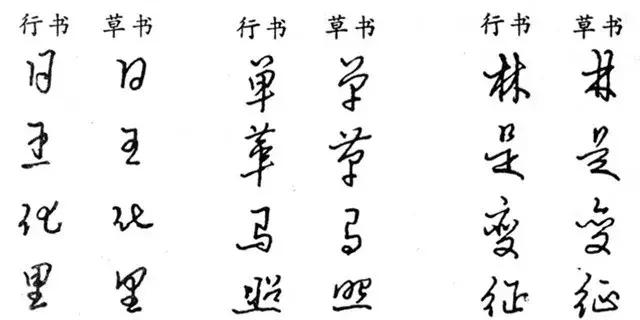 行书 草书 行书 草书 行书 草书
月 日 单 单 林 林
王 王 草 草 是 是
化 化 马 马 变 变
里 里 照 照 征 征